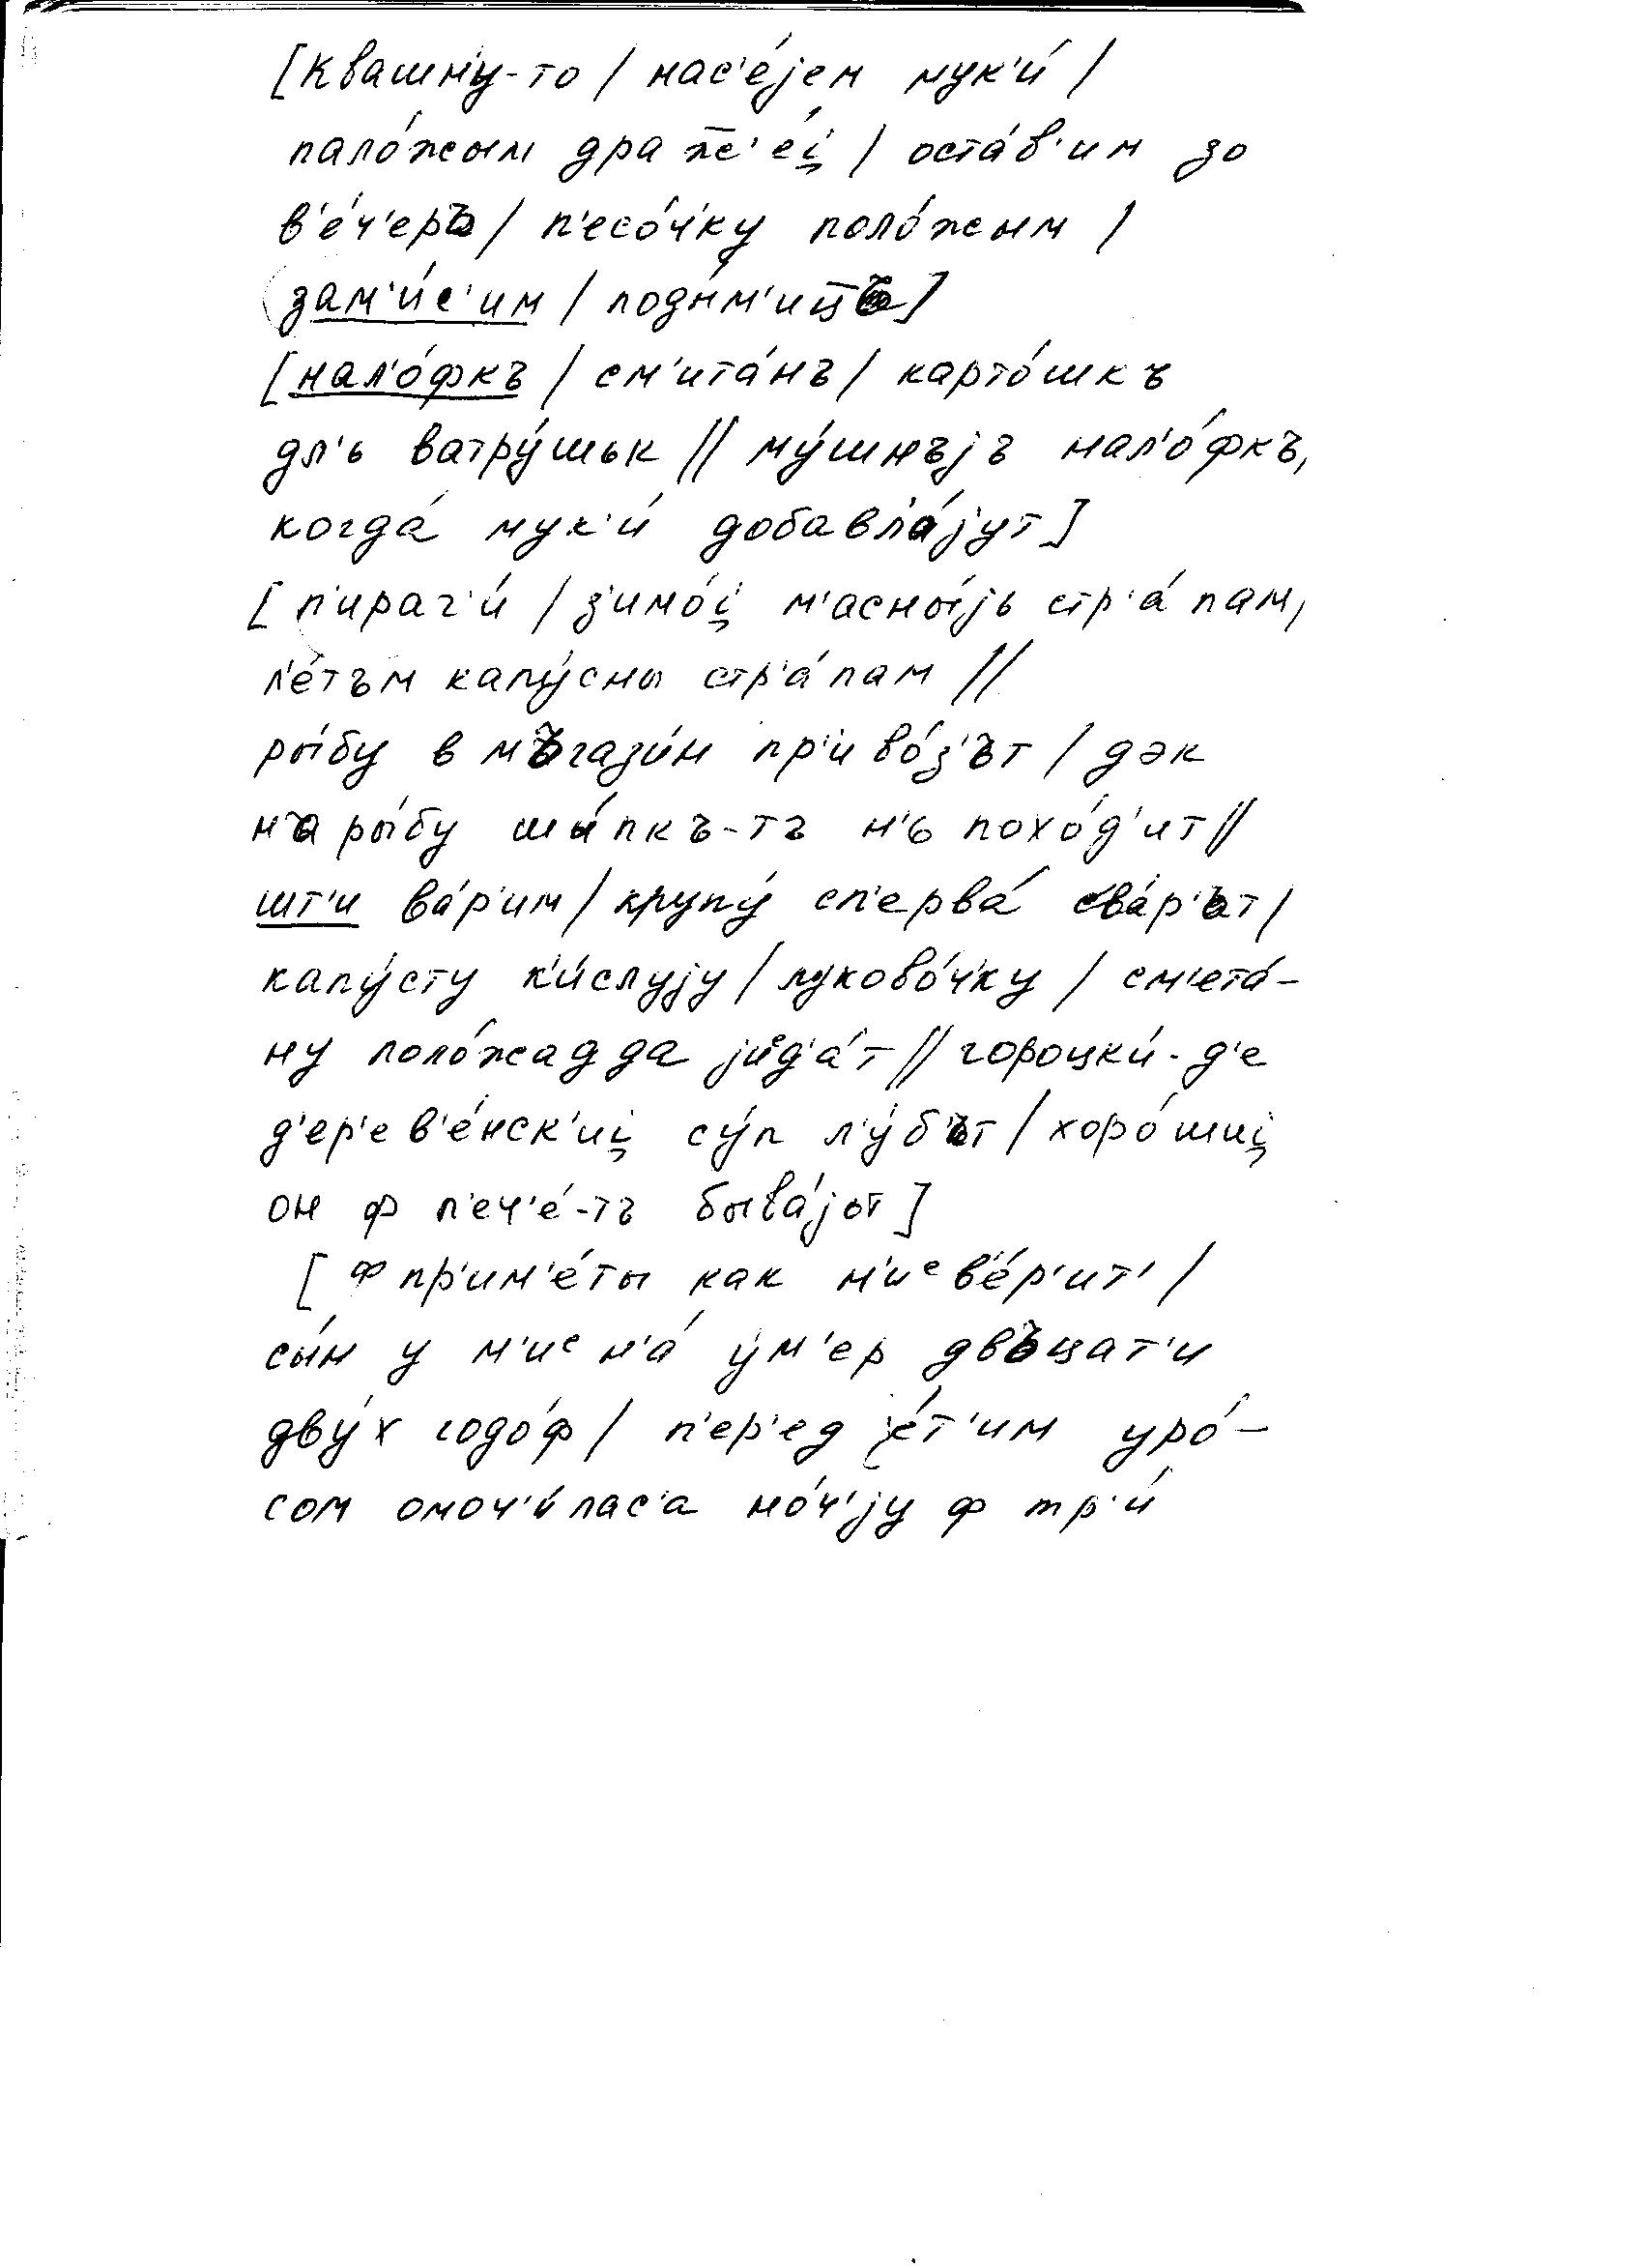 [квашн'у-то / нас'е́јем мук'и́ /
пало́жым дра ж̅'е́į / оста́в'им зо
в'е́ч'еръ / п'есо́ч'ку поло́жым /
зам'и́с'им / поды́м'иц̅ъ]
[нал'о́фкъ / см'ита́нъ / карто́шкъ
дл'ь ватру́шък // му́шнъјъ нал'о́фкъ,
когда́ мук'и́ добавл'а́јут]
[п'ираг'и́ / з'имо́į м'асны́јь стр'а́пам,
л'е́тъм капу́сны стр'а́пам //
ры́бу в мъгази́н пр'иво́з'ът / дэк
на ры́бу шы́пкъ-тъ н'ь похо́д'ит //
шт'и ва́р'им / крупу́ сп'ерва́ сва́р'ът /
капу́сту к'и́слују / луково́ч'ку / см'ета́-
ну поло́жад да јиᵉд'а́т // гороцки́-д'е
д'ер'ев'е́нск'иį су́п л'у́б'ът / хоро́шиį
он ф п'еч'е́-тъ быва́јът]
[ф пр'им'е́ты как н'иᵉ в'е́р'ит' /
сы́н у м'иᵉн'а́ у́м'ер двъцат'и
дву́х годо́ф / п'ер'ед е́т'им уро́-
сом омоч'и́лас'а но́ч'ју ф тр'и́